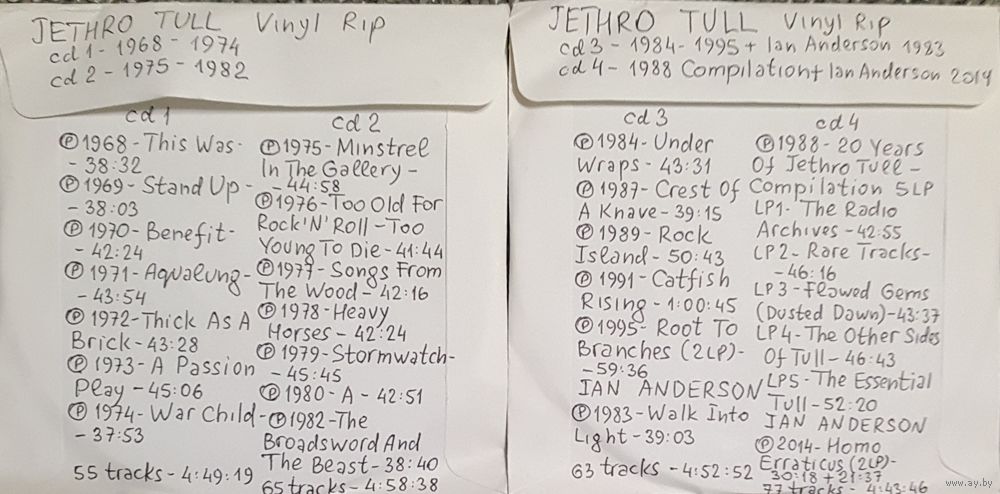 JETHRO TULL Vinyl Rip
cd 1 - 1968 - 1974
cd 2 - 1975 - 1982
cd 1
Ⓟ1968 - This Was -
- 38:32
Ⓟ1969 - Stand Up -
- 38:03
Ⓟ1970 - Benefit -
- 42:24
Ⓟ1971 - Aqualung -
- 43:54
Ⓟ1972 - Thick As A
Brick - 43:28
Ⓟ1973 - A Passion
Play - 45:06
Ⓟ1974 - War Child -
- 37:53
55 tracks - 4:49:19
cd 2
Ⓟ1975 - Minstrel
In The Gallery -
- 44:58
Ⓟ1976 - Too Old For
Rock'N'Roll - Too
Young To Die - 41:44
Ⓟ1977 - Songs From
The Wood - 42:16
Ⓟ1978 - Heavy
Horses - 42:24
Ⓟ1979 - Stormwatch -
- 45:45
Ⓟ1980 - A - 42:51
Ⓟ1982 - The
Broadsword And
The Beast - 38:40
65 tracks - 4:58:38
JETHRO TULL Vinyl Rip
cd 3 - 1984 - 1995 + Ian Anderson 1983
cd 4 - 1988 Compilation + Ian Anderson 2014
cd 3
Ⓟ1984 - Under
Wraps - 43:31
Ⓟ1987 - Crest Of
A Knave - 39:15
Ⓟ1989 - Rock
Island - 50:43
Ⓟ1991 - Catfish
Rising - 1:00:45
Ⓟ1995 - Root To
Branches (2LP) -
- 59:36
IAN ANDERSON
Ⓟ1983 - Walk Into
Light - 39:03
63 tracks - 4:52:52
cd 4
Ⓟ1988 - 20 Years
Of Jethro Tull -
Compilation 5LP
LP1 - The Radio
Archives - 42:55
LP2 - Rare Tracks -
- 46:16
LP3 - Flawed Gems
(Dusted Down) - 43:37
LP4 - The Other Sides
Of Tull - 46:43
LP5 - The Essential
Tull - 52:20
IAN ANDERSON
Ⓟ2014 - Homo
Erraticus (2LP) -
30:18 + 21:37
77 tracks - 4:43:46
www.ay.by